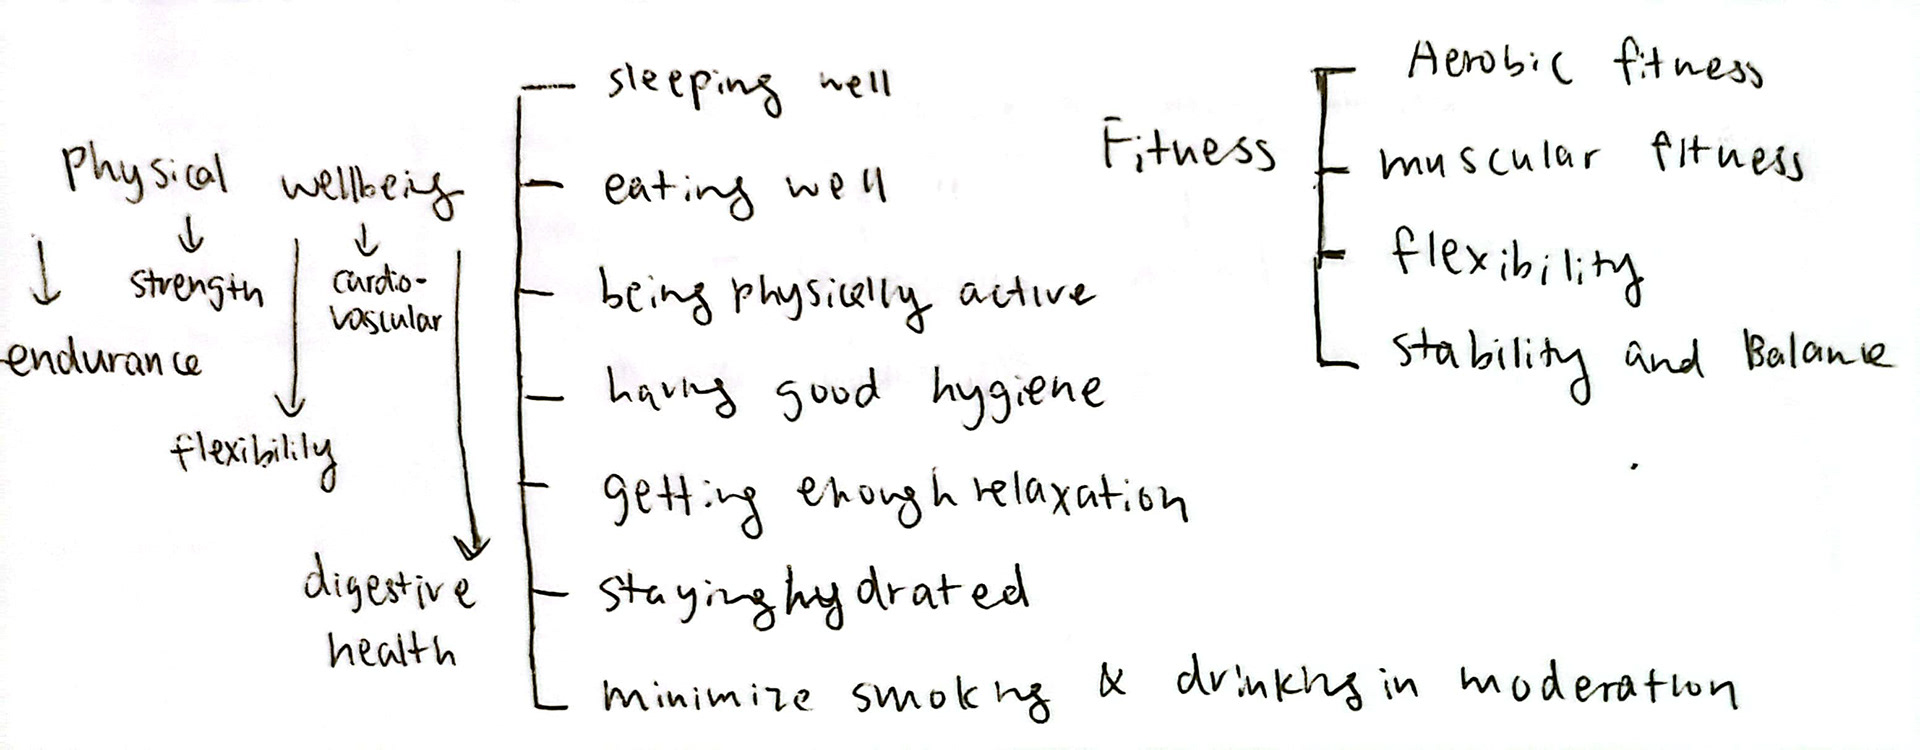 Physical wellbeing
endurance
strength
flexibility
cardio-
vascular
digestive
health
sleeping well
eating well
being physically active
having good hygiene
getting enough relaxation
staying hydrated
minimize smoking & drinking in moderation
Fitness
Aerobic fitness
muscular fitness
flexibility
stability and Balance